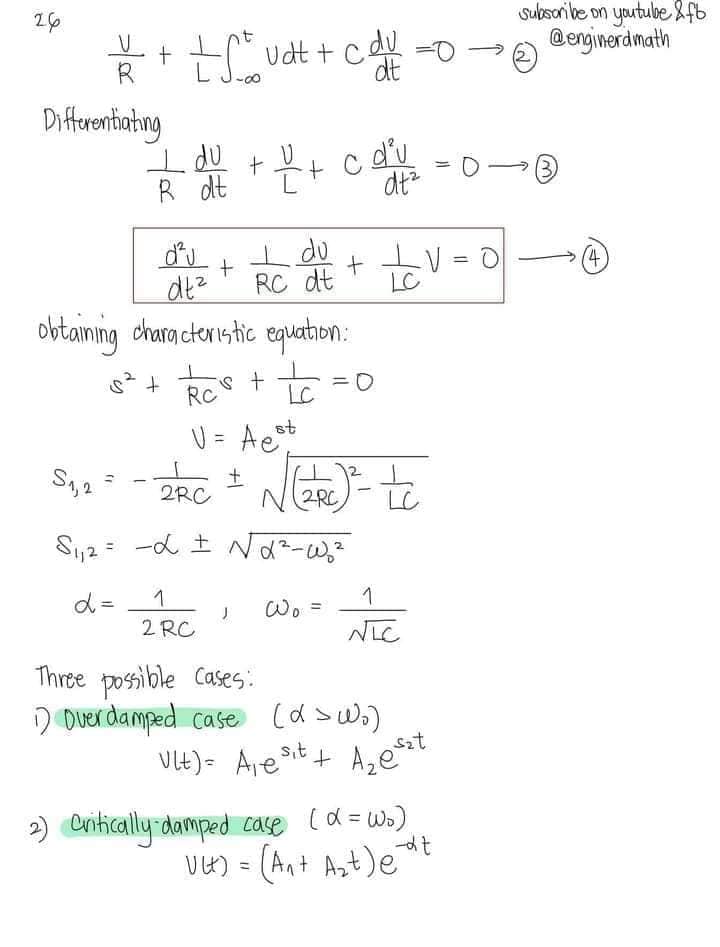 26
subscribe on youtube & fb
@enginerdmath
v/R + 1/L ∫_{-∞}^{t} v dt + C dv/dt = 0 → ②
Differentiating
1/R dv/dt + v/L + C d²v/dt² = 0 → ③
d²v/dt² + 1/RC dv/dt + 1/LC v = 0 → ④
obtaining characteristic equation:
s² + 1/RC s + 1/LC = 0
v = Ae^{st}
S_{1,2} = - 1/2RC ± √((1/2RC)² - 1/LC)
S_{1,2} = -α ± √(α² - ω₀²)
α = 1/2RC , ω₀ = 1/√LC
Three possible cases:
1) Overdamped case (α > ω₀)
v(t) = A₁e^{s₁t} + A₂e^{s₂t}
2) Critically-damped case (α = ω₀)
v(t) = (A₁ + A₂t)e^{-αt}